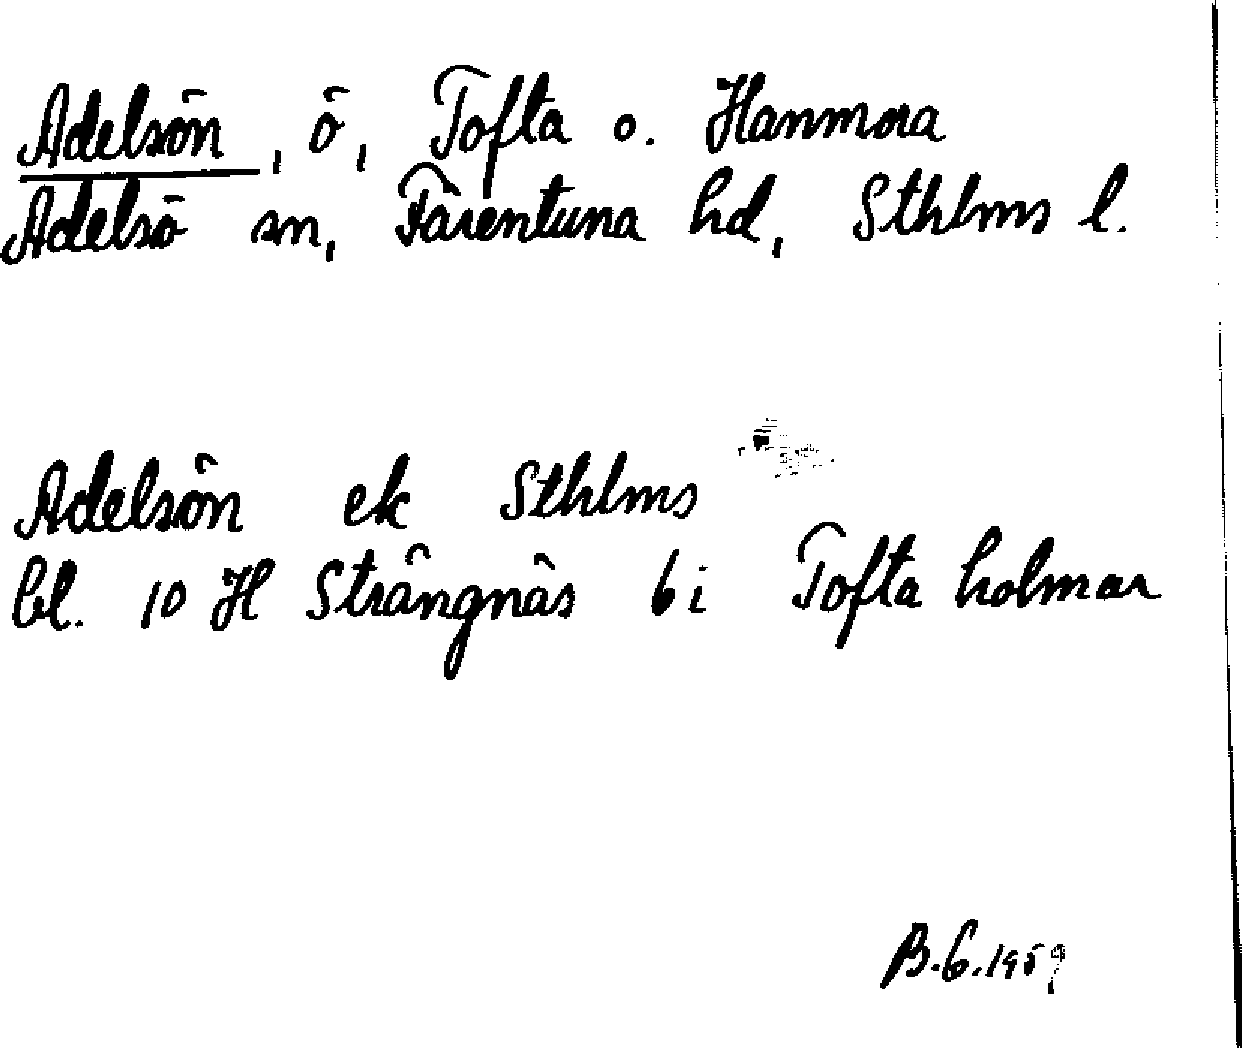 Adelsön, ö, Tofta o. Hanmora
Adelsö sn, Färentuna hd, Sthlms l.
Adelsön ek Sthlms
bl. 10 H Strängnäs 6 i Tofta holmar
B.G. 1959